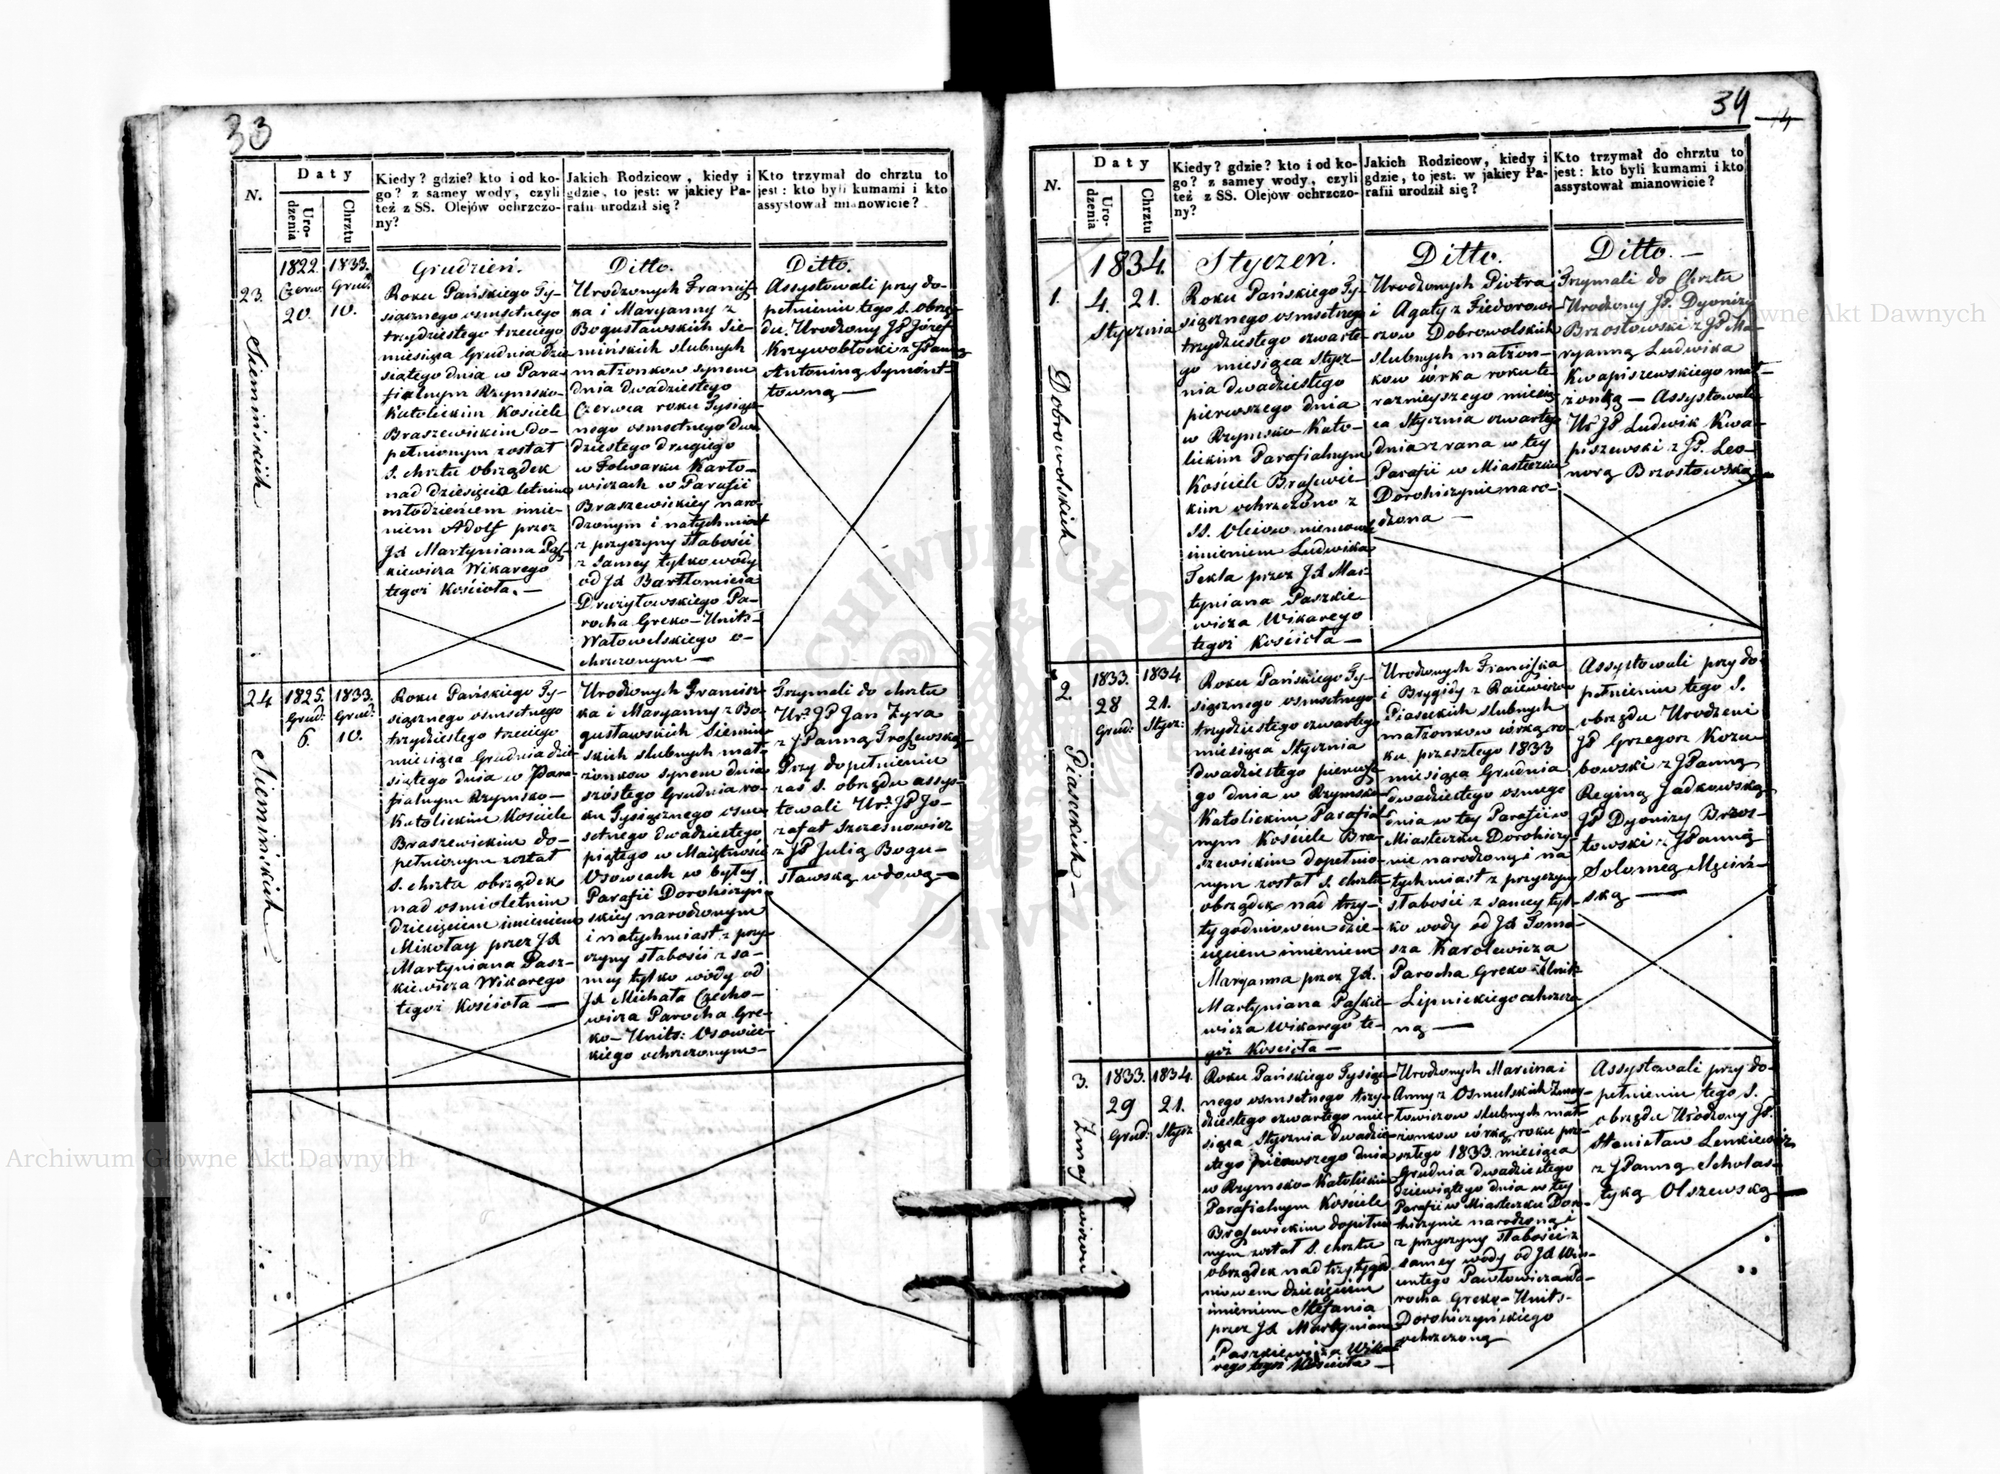 33
N.
Daty
Urodzenia
Chrztu
Kiedy? gdzie? kto i od ko-
go? z samey wody, czyli
też z SS. Olejów ochrzczo-
ny?
Jakich Rodzicow, kiedy i
gdzie, to jest: w jakiey Pa-
rafii urodził się?
Kto trzymał do chrztu to
jest: kto byli kumami i kto
assystował mianowicie?
23.
Siemińskich
1822.
Czerw.
20.
1833.
Grud:
10.
Grudzień.
Roku Pańskiego Ty-
siącznego osmsetnego
trzydziestego trzeciego
miesiąca Grudnia dzie-
siątego dnia w Para-
fialnym Rzymsko-
Katolickim Kościele
Braszewickim do-
pełnionym został
S. chrztu obrządek
nad dziesięcio letnim
młodzieniem imie-
niem Adolf przez
JX Martyniana Pasz-
kiewicza Wikarego
tegoż Kościoła. —
Ditto.
Urodzonych Francisz-
ka i Maryanny z
Bogusławskich Sie-
mińskich slubnych
małżonkow synem
dnia dwadziestego
Czerwca roku Tysiącz-
nego osmsetnego dwu-
dziestego drugiego
w Folwarku Karło-
wiczach w Parafii
Braszewickiey naro-
dzonym i natychmiast
z przyczyny słabości
z samey tylko wody
od JX Bartłomieia
Drużyłowskiego Pa-
rocha Greko-Units-
Watowelskiego o-
chrzconym —
Ditto.
Assystowali przy do-
pełnieniu tego S. obrzę-
du. Urodzony JP Józef
Krzywobłocki z JPanną
Antoniną Symont-
towną —
24
Siemińskich —
1825.
Grud:
6.
1833.
Grud:
10.
Roku Pańskiego Ty-
siącznego osmsetnego
trzydziestego trzeciego
miesiąca Grudnia dzie-
siątego dnia w Para-
fialnym Rzymsko-
Katolickim Kościele
Braszewickim do-
pełnionym został
S. chrztu obrządek
nad osmioletnim
dziecięciem imieniem
Mikołay przez JX
Martyniana Pasz-
kiewicza Wikarego
tegoż Kościoła —
Urodzonych Francisz-
ka i Maryanny z Bo-
gusławskich Siemin-
skich slubnych mał-
żonkow synem dnia
szóstego Grudnia ro-
ku Tysiącznego osm-
setnego dwadziestego
piątego w Maiętności
Osowcach w byłey
Parafii Dorohiczyń-
skiey narodzonym
i natychmiast z przy-
czyny słabości z sa-
mey tylko wody od
JX Michała Czecho-
wicza Parocha Gre-
ko-Units: Osowiec-
kiego ochrzconym —
Trzymali do chrztu
Ur: JP Jan Zyra
z JPanną
Przy dopełnieniu
zaś S. obrzędu assys-
towali Ur: JP Jo-
zafat Szczesnowicz
z JP Julią Bogu-
sławską wdową —
34
14
N.
Daty
Urodzenia
Chrztu
Kiedy? gdzie? kto i od ko-
go? z samey wody, czyli
też z SS. Olejów ochrzczo-
ny?
Jakich Rodzicow, kiedy i
gdzie, to jest: w jakiey Pa-
rafii urodził się?
Kto trzymał do chrztu to
jest: kto byli kumami i kto
assystował mianowicie?
1.
Dobrowolskich
1834.
4. 21.
Stycznia
Styczeń.
Roku Pańskiego Ty-
siącznego osmsetnego
trzydziestego czwarte-
go miesiąca Stycz-
nia dwadziestego
pierwszego dnia
w Rzymsko-Kato-
lickim Parafialnym
Kościele Braszewic-
kim ochrzczono z
SS. Oleiow niemowlę
imieniem Ludwika
Tekla przez JX Mar-
tyniana Paszkie-
wicza Wikarego
tegoż Kościoła —
Ditto.
Urodzonych Piotra
i Agaty z Fiedorowi-
czow Dobrowolskich
slubnych małżon-
kow córka roku te-
raznieyszego miesią-
ca Stycznia czwartego
dnia z rana w tey
Parafii w Miasteczku
Dorohiczynie naro-
dzona —
Ditto. —
Trzymali do Chrztu
Urodzony JP. Dyonizy
Brzostowski z JP Ma-
ryanną Ludwika
Kwapiszewskiego mał-
żonką — Assystowali
Ur JP Ludwik Kwa-
piszewski z JP. Leo-
norą Brzostowską —
2.
Piaseckich —
1833.
28
Grud:
1834
21.
Stycz:
Roku Pańskiego Ty-
siącznego osmsetnego
trzydziestego czwartego
miesiąca Stycznia
dwadziestego pierwsze-
go dnia w Rzymsko-
Katolickim Parafial-
nym Kościele Bra-
szewickim dopełnio-
nym został S. chrztu
obrządek nad trzy-
tygodniowem dzie-
cięciem imieniem
Maryanna przez JX.
Martyniana Paszkie-
wicza Wikarego te-
goż Kościoła —
Urodzonych Franciszka
i Brygidy z Raiewiczow
Piaseckich slubnych
małżonkow córką ro-
ku przeszłego 1833
miesiąca Grudnia
dwadziestego osmego
dnia w tey Parafii w
Miasteczku Dorohiczy-
nie narodzoney i na-
tychmiast z przyczyny
słabości z samey tyl-
ko wody od JX Toma-
sza Karolewicza
Parocha Greko-Units
Lipnickiego ochrzczo-
ną —
Assystowali przy do-
pełnieniu tego S.
obrzędu Urodzeni
JP Grzegorz Kozu-
bowski z JPanną
Reginą Jadkowską
JP Dyonizy Brzos-
towski z JPanną
Solomeą
ską —
3.
1833.
29
Grud:
1834.
21.
Stycz
Roku Pańskiego Tysiącz-
nego osmsetnego trzy-
dziestego czwartego mie-
siąca Stycznia dwadzie-
stego pierwszego dnia
w Rzymsko-Katolickim
Parafialnym Kościele
Braszewickim dopełnio-
nym został S. chrztu
obrządek nad trzytygod-
niowem dziecięciem
imieniem Stefania
przez JX Martyniana
Paszkiewicza Wika-
rego tegoż Kościoła —
Urodzonych Marcina i
Anny z Osmulskich
slubnych mał-
żonkow córką roku prze-
szłego 1833. miesiąca
Grudnia dwadziestego
dziewiątego dnia w tey
Parafii w Miasteczku Doro-
hiczynie narodzoną i
z przyczyny słabości z
samey wody od JX Win-
centego Pawłowicza Pa-
rocha Greko-Units-
Dorohiczyńskiego
ochrzczoną
Assystowali przy do-
pełnieniu tego S.
obrzędu Urodzony JP.
Stanisław Lenkiewicz
z JPanną Scholas-
tyką Olszewską —
Archiwum Główne Akt Dawnych
Archiwum Główne Akt Dawnych
ARCHIWUM GŁÓWNE AKT DAWNYCH